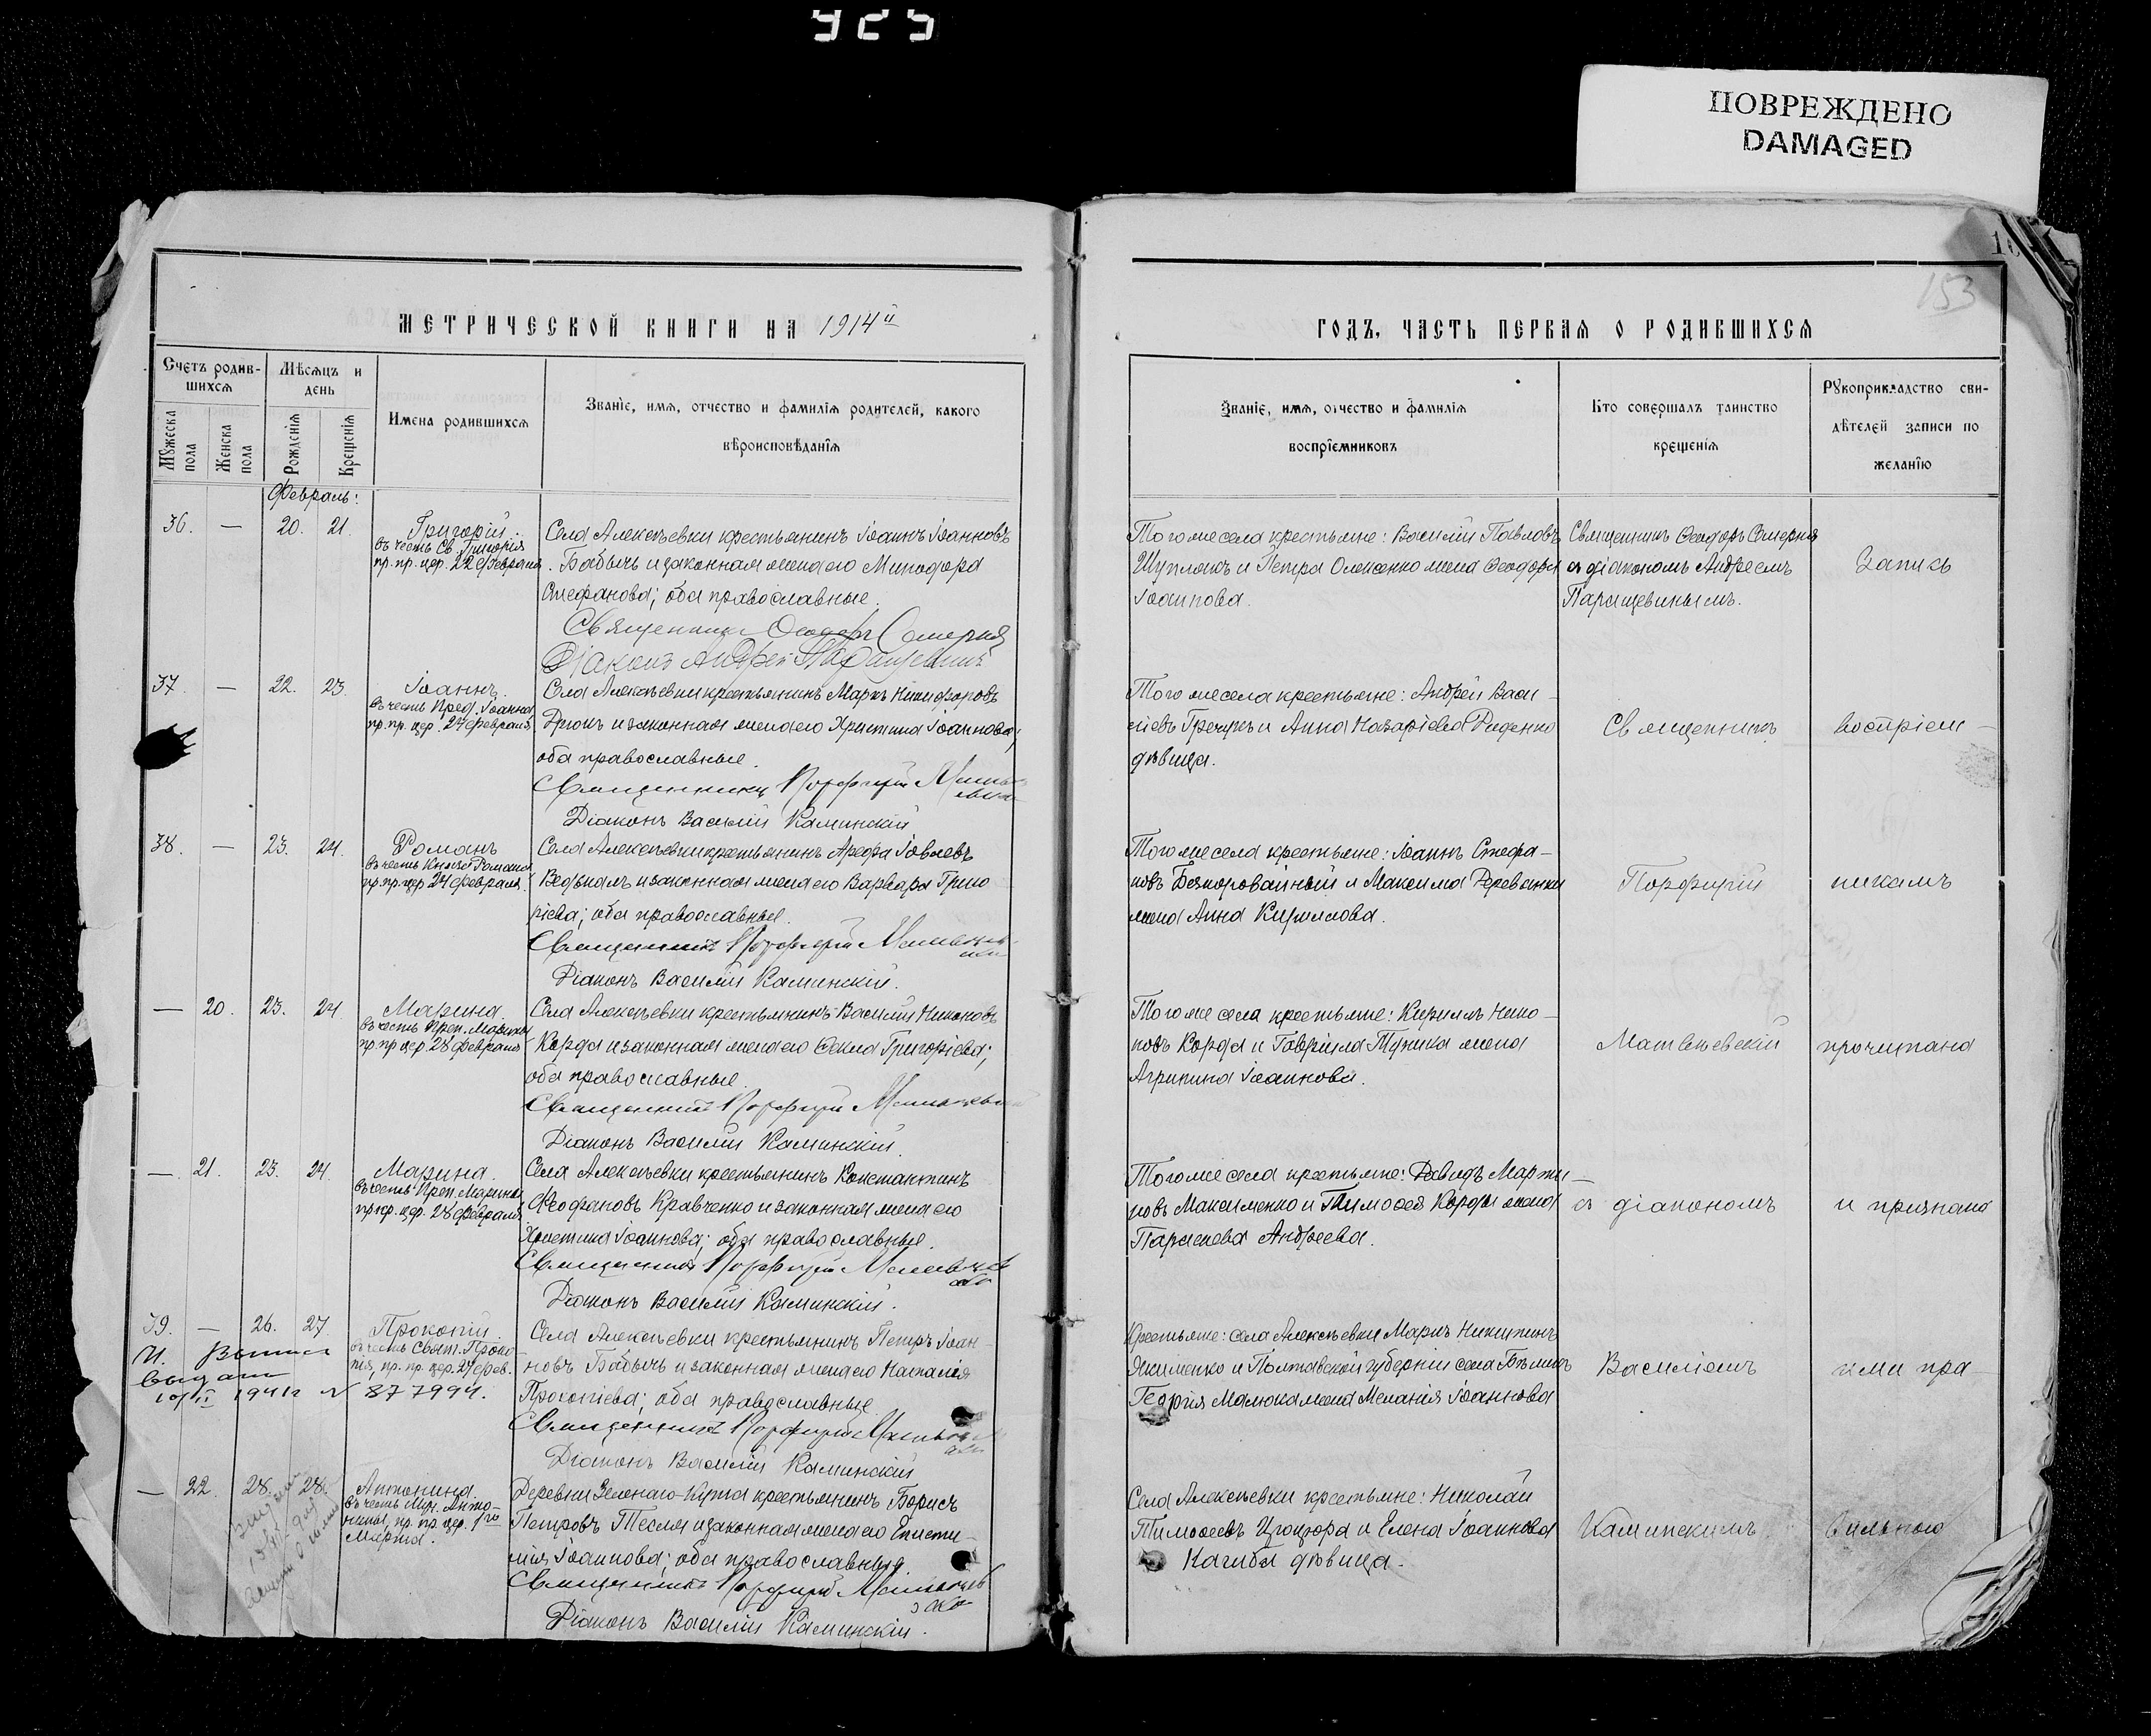 925
ПОВРЕЖДЕНО
DAMAGED
153
МЕТРИЧЕСКОЙ КНИГИ НА 1914й
ГОДЪ, ЧАСТЬ ПЕРВАЯ О РОДИВШИХСЯ
Счетъ родив-
шихся
Мѣсяцъ и
день
Мужеска
пола
Женска
пола
Рожденія
Крещенія
Имена родившихся
Званіе, имя, отчество и фамилія родителей, какого
вѣроисповѣданія
Званіе, имя, отчество и фамилія
воспріемниковъ
Кто совершалъ таинство
крещенія
Рукоприкладство сви-
дѣтелей записи по
желанію
Февраль:
36. — 20. 21.
Григорій.
въ честь Св. Григорія
пр. пр. цер. 22 февраля
Села Алексѣевки крестьянинъ Іоаннъ Іоанновъ
Бабычъ и законная жена его Минодора
Стефанова; оба православные.
Священникъ Ѳеодоръ
Діаконъ Андрей
Того же села крестьяне: Василій Павловъ
Шуплякъ и Петра Олексенко жена Ѳеодора
Іоаннова.
Священникъ Ѳеодоръ
съ діакономъ Андреемъ
Запись
37. — 22. 23.
Іоаннъ.
въ честь Прод. Іоанна
пр. пр. цер. 24 февраля
Села Алексѣевки крестьянинъ Маркъ Никифоровъ
и законная жена его Христина Іоаннова;
оба православные.
Священникъ Порфирій
Діаконъ Василій Каминскій
Того же села крестьяне: Андрей Васи-
ліевъ Гречукъ и Анна Назаріева Руденко
дѣвица.
Священникъ
воспріем-
38. — 23. 24.
Романъ
въ честь Князя Романа
пр. пр. цер. 24 февраля
Села Алексѣевки крестьянинъ Арефа Іовлевъ
и законная жена его Варвара Григо
ріева; оба православные.
Священникъ Порфирій
Діаконъ Василій Каминскій.
Того же села крестьяне: Іоаннъ Стефа-
новъ Безкоровайный и Максима Деревянки
жена Анна Кириллова.
Порфирій
никамъ
— 20. 23. 24.
Марина.
въ честь Преп. Марины
пр. пр. цер. 28 февраля
Села Алексѣевки крестьянинъ Василій Никоновъ
Корда и законная жена его Ѳекла Григоріева;
оба православные.
Священникъ Порфирій
Діаконъ Василій Каминскій.
Того же села крестьяне: Кириллъ Нико-
новъ Корда и Гавріила Тупика жена
Агрипина Іоаннова.
Матвѣевскій
прочитана
— 21. 23. 24.
Марина.
въ честь Преп. Марины
пр. пр. цер. 28 февраля
Села Алексѣевки крестьянинъ Константинъ
Ѳеофановъ Кравченко и законная жена его
Христина Іоаннова; оба православные.
Священникъ Порфирій
Діаконъ Василій Каминскій.
Того же села крестьяне: Давидъ Марти-
новъ Максименко и Тимоѳея Корды жена
Параскева Андреева.
съ діакономъ
и признана
39. — 26. 27.
Прокопій
въ честь Свят. Проко-
пія, пр. пр. цер. 27 фев.
выдан
1941г N 877994.
Села Алексѣевки крестьянинъ Петръ Іоан-
новъ Бабычъ и законная жена его Наталія
Прокопіева; оба православные.
Священникъ Порфирій
Діаконъ Василій Каминскій
Крестьяне: села Алексѣевки Маркъ Никитинъ
Якименко и Полтавской губерніи села
Георгія жена Меланія Іоаннова
Василіемъ
ими пра-
— 22. 28. 28.
Антонина.
въ честь Муч. Анто-
нины, пр. пр. цер. 1го
Марта.
Деревни Зеленаго-Кута крестьянинъ Борисъ
Петровъ Тесля и законная жена его Еписти-
мія Іоаннова; оба православныя.
Священникъ Порфирій
Діаконъ Василій Каминскій.
Села Алексѣевки крестьяне: Николай
Тимоѳеевъ и Елена Іоаннова
дѣвица.
Каминскимъ
вильною